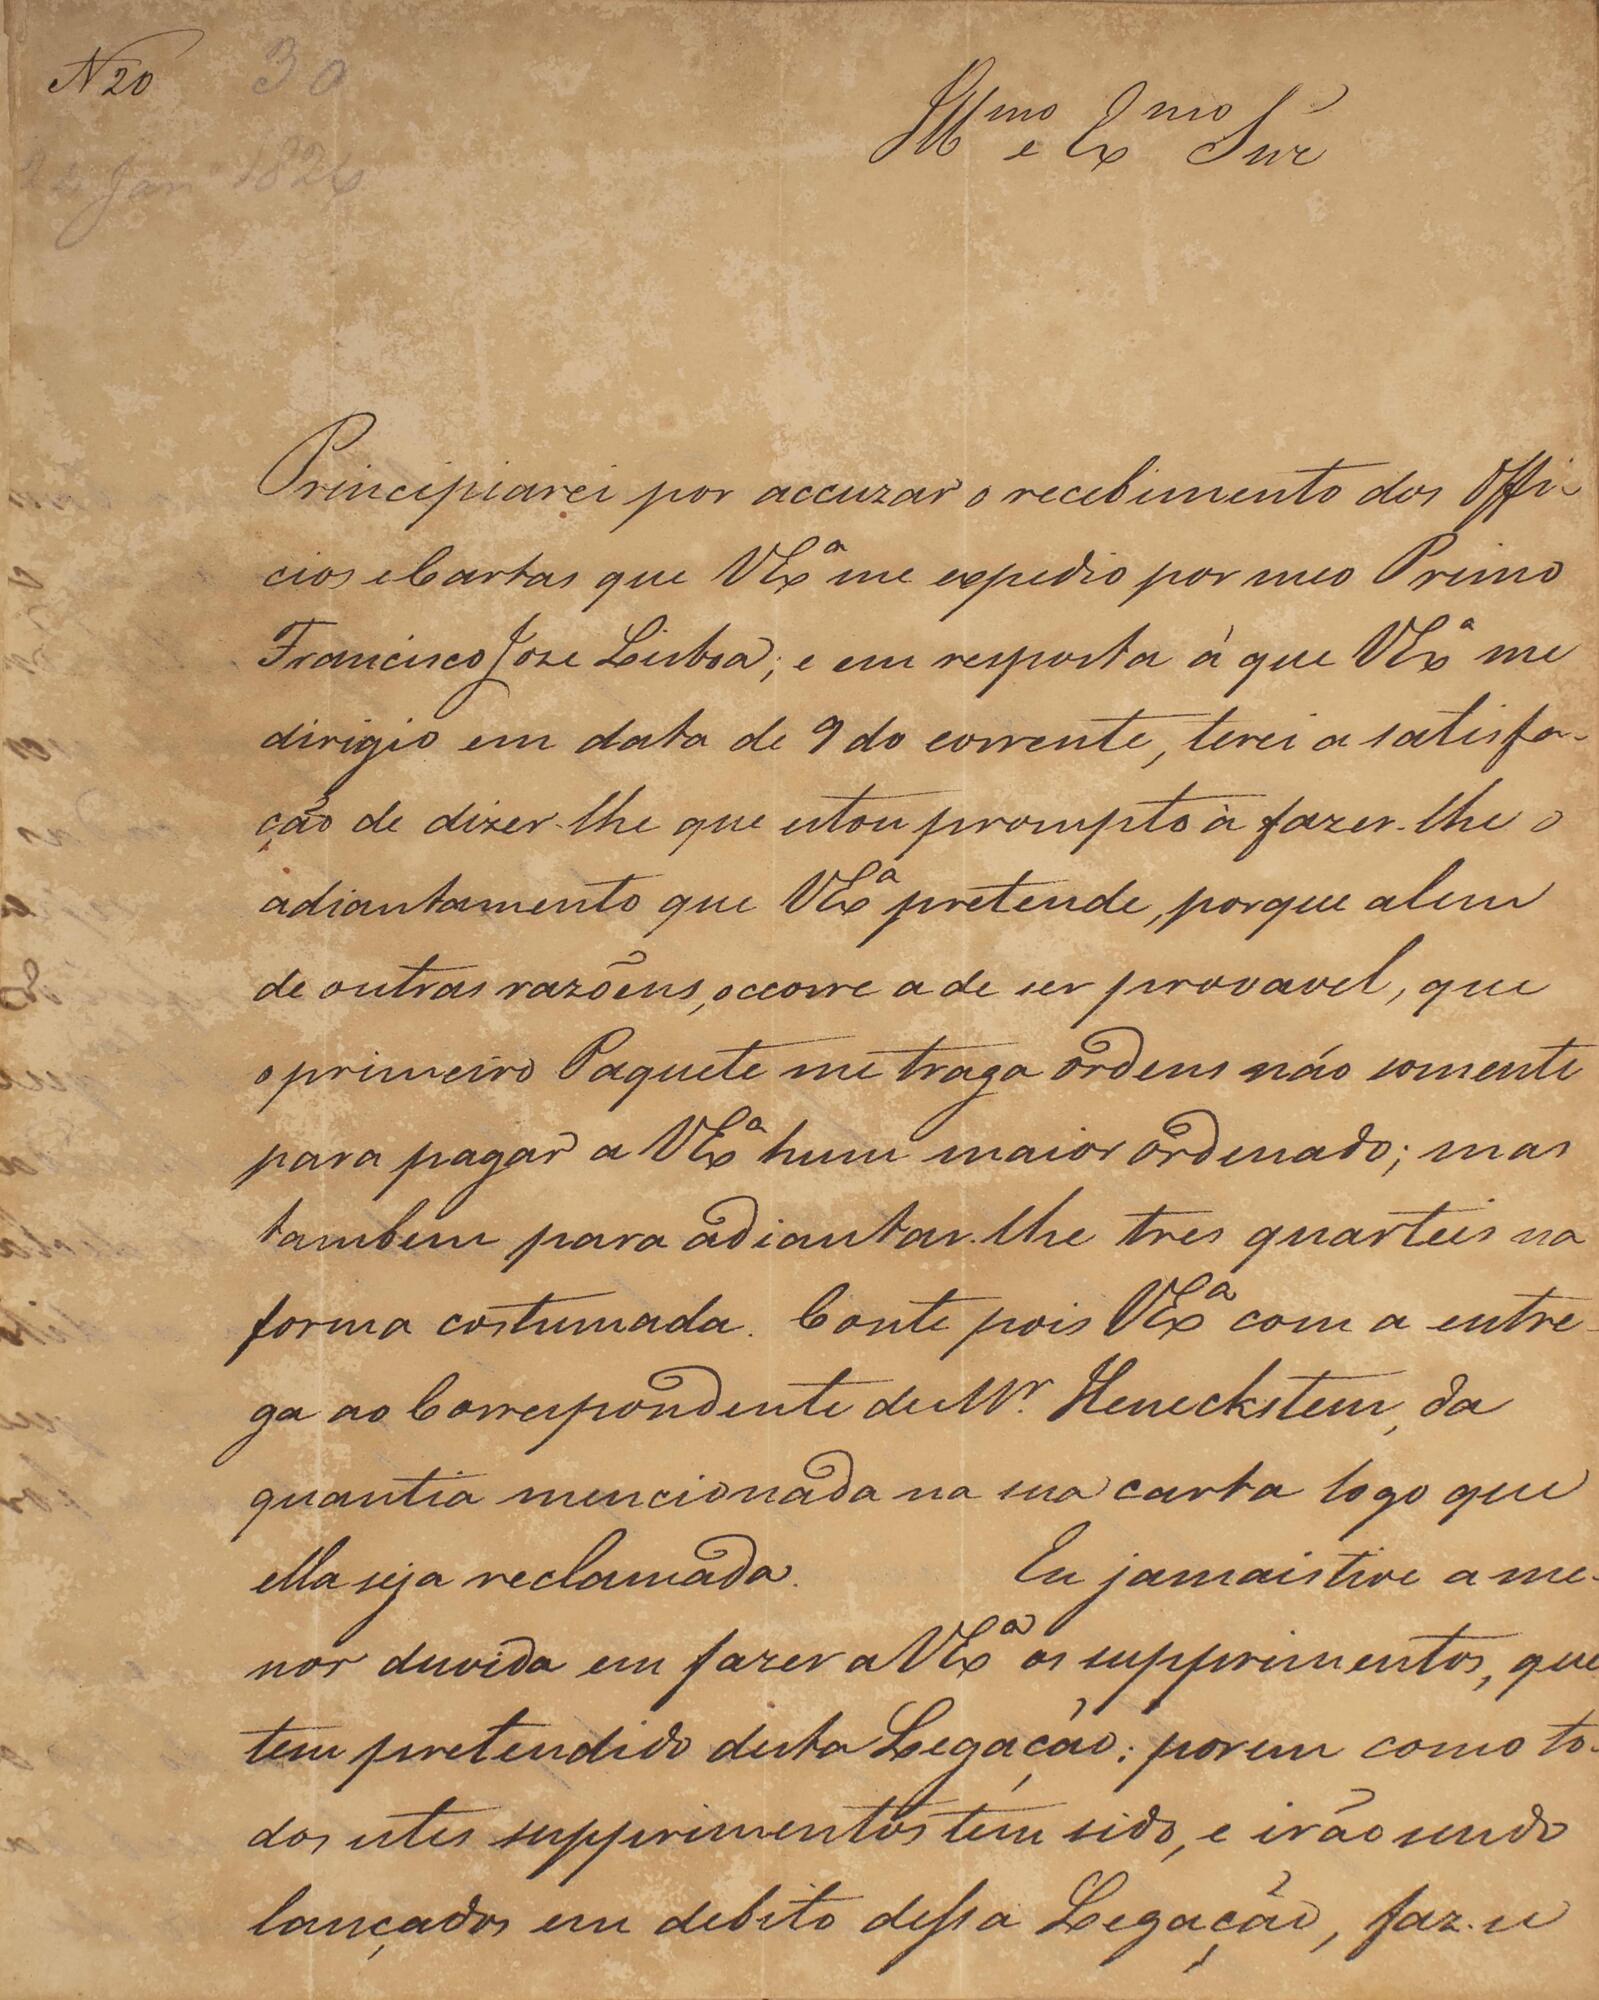 N 20 30
24 Jan 1826
Illmo e Exmo Snr
Principiarei por accuzar o recebimento dos Offi-
cios e Cartas que VExa me expedio por meo Primo
Francisco Joze Lisboa; e em resposta á que VExa me
dirigio em data de 9 do corrente, terei a satisfa-
ção de dizer-lhe que estou prompto à fazer-lhe o
adiantamento que VExa pretende, porque alem
de outras razõens, occorre a de ser provavel, que
o primeiro Paquete me traga ordens não somente
para pagar a VExa hum maior ordenado; mas
tambem para adiantar-lhe tres quarteis na
forma costumada. Conte pois VExa com a entre-
ga ao Correspondente de Mr. Heneckstein, da
quantia mencionada na sua carta logo que
ella seja reclamada. Eu jamais tive a me-
nor duvida em fazer a VExa os supprimentos, que
tem pretendido desta Legação: porem como to-
dos estes supprimentos tem sido, e irão sendo
lançados em debito dessa Legação, faz-se